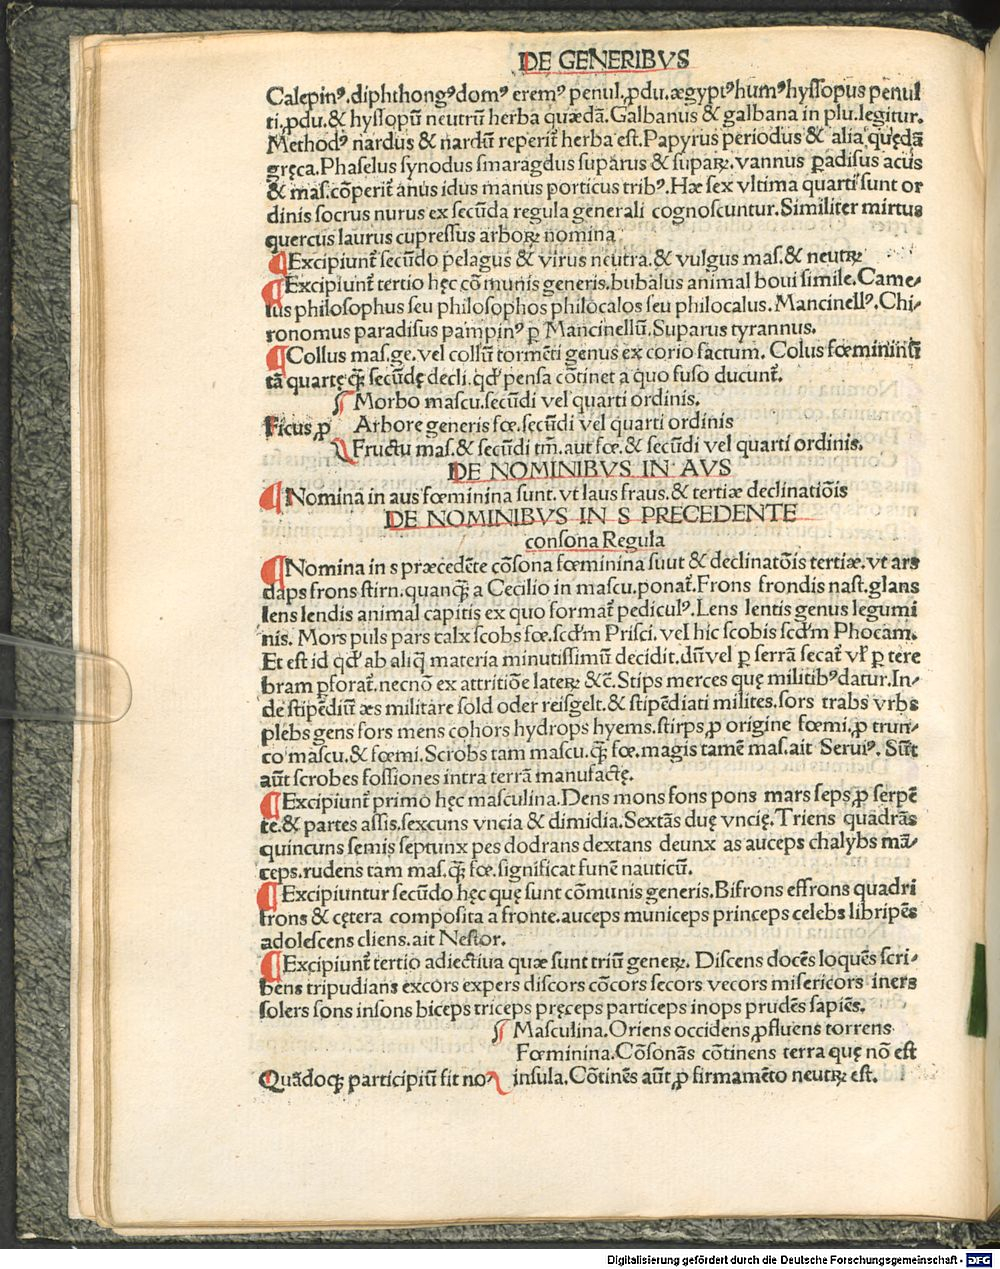 DE GENERIBVS
Calepinꝰ.diphthongꝰdomꝰ eremꝰ penul.ꝓdu.ægyptꝰhumꝰhyſſopus penul
ti.ꝓdu.& hyſſopū neutrū herba quædā.Galbanus & galbana in plu.legitur.
Methodꝰ nardus & nardū reperit̄ herba eſt.Papyrus periodus & alia quędā
gręca.Phaſelus ſynodus ſmaragdus ſuparus & ſupaꝝ.vannus ꝑadiſus acus
& maſ.cōperit̄ anus idus manus porticus tribꝰ.Hæ ſex vltima quarti ſunt or
dinis ſocrus nurus ex ſecūda regula generali cognoſcuntur.Similiter mirtus
quercus laurus cupreſſus arboꝝ nomina
Excipiunt̄ ſecūdo pelagus & virus neutra.& vulgus maſ.& neutꝝ
Excipiunt̄ tertio hęc cōmunis generis.bubalus animal boui ſimile.Came⸗
lus philoſophus ſeu philoſophos philocalos ſeu philocalus.Mancinellꝰ.Chi⸗
ronomus paradiſus pampinꝰ ꝑ Mancinellū.Suparus tyrannus.
Collus maſ.ge.vel collū tormēti genus ex corio factum. Colus fœmininū
tā quartę ꝙ̄ ſecūdę decli.qđ penſa cōtinet a quo fuſo ducunt̄.
Morbo maſcu.ſecūdi vel quarti ordinis.
Ficus ꝓ Arbore generis fœ.ſecūdi vel quarti ordinis
Fructu maſ.& ſecūdi tm̄.aut fœ.& ſecūdi vel quarti ordinis.
DE NOMINIBVS IN AVS
Nomina in aus fœminina ſunt.vt laus fraus.& tertiæ declinatiōis
DE NOMINIBVS IN S PRECEDENTE
conſona Regula
Nomina in s præcedēte cōſona fœminina ſuut & declinatōis tertiæ.vt ars
daps frons ſtirn.quanꝙ̄ a Cecilio in maſcu.ponat̄.Frons frondis naſt.glans
lens lendis animal capitis ex quo format̄ pediculꝰ.Lens lentis genus legumi
nis. Mors puls pars talx ſcobs fœ.ſcđm Priſci.vel hic ſcobis ſcđm Phocam.
Et eſt id qđ ab aliq̄ materia minutiſſimū decidit.dū vel ꝑ ſerrā ſecat̄ vł ꝑ tere
bram ꝑforat̄.necnō ex attritiōe lateꝝ &c̄.Stips merces quę militibꝰdatur.In⸗
de ſtipēdiū æs militare ſold oder reiſgelt.& ſtipēdiati milites.ſors trabs vrbs
plebs gens fors mens cohors hydrops hyems.ſtirps ꝓ origine fœmi.ꝓ trun⸗
co maſcu.& fœmi.Scrobs tam maſcu.ꝙ̄ fœ.magis tamē maſ.ait Seruiꝰ. Sūt
aūt ſcrobes foſſiones intra terrā manufactę.
Excipiunt̄ primo hęc maſculina.Dens mons fons pons mars ſeps ꝓ ſerpē
te.& partes aſſis.ſexcuns vncia & dimidia.Sextās duę vncię.Triens quadrās
quincuns ſemis ſeptunx pes dodrans dextans deunx as auceps chalybs mā⸗
ceps.rudens tam maſ.ꝙ̄ fœ.ſignificat funē nauticū.
Excipiuntur ſecūdo hęc quę ſunt cōmunis generis.Bifrons effrons quadri
frons & cętera compoſita a fronte.auceps municeps princeps celebs libripēs
adoleſcens cliens.ait Neſtor.
Excipiunt̄ tertio adiectiua quæ ſunt triū geneꝝ. Diſcens docēs loquēs ſcri⸗
bens tripudians excors expers diſcors cōcors ſecors vecors miſericors iners
ſolers ſons inſons biceps triceps pręceps particeps inops prudēs ſapiēs.
Maſculina.Oriens occidens ꝓfluens torrens
Fœminina.Cōſonās cōtinens terra quę nō eſt
Quādoꝙ participiū fit noꝰ inſula.Cōtinēs aūt ꝓ firmamēto neutꝝ eſt.
Digitalisierung gefördert durch die Deutsche Forschungsgemeinschaft - DFG